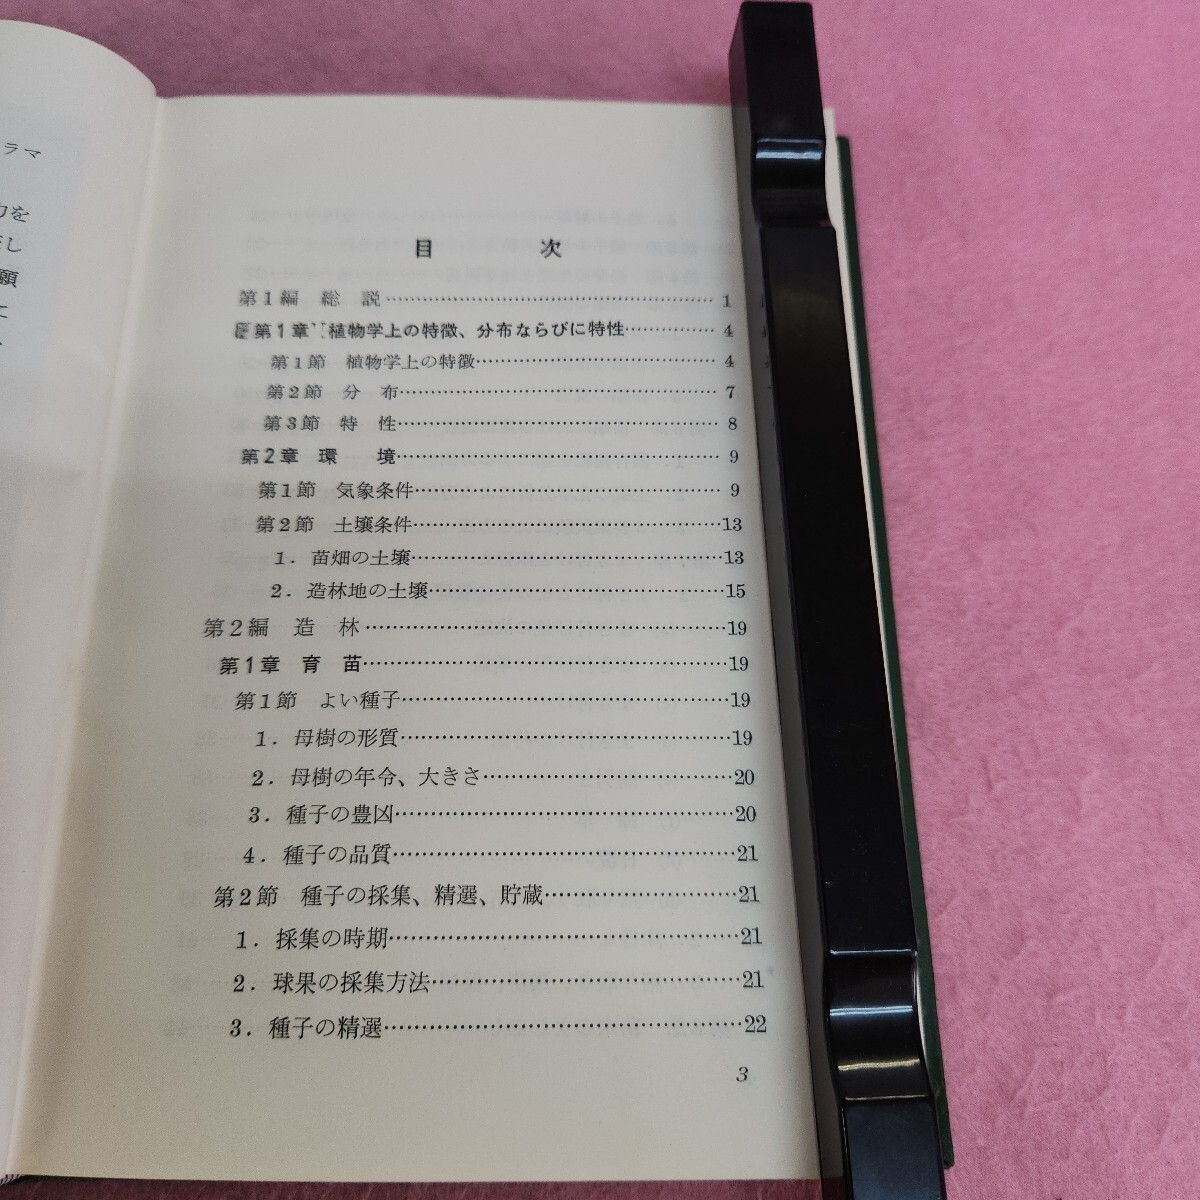 ラマ
力を
し
願
に
目 次
第1編 総 説……………………………………1
第1章 植物学上の特徴、分布ならびに特性……………4
第1節 植物学上の特徴……………………………4
第2節 分 布……………………………………7
第3節 特 性……………………………………8
第2章 環 境……………………………………9
第1節 気象条件…………………………………9
第2節 土壌条件…………………………………13
1. 苗畑の土壌…………………………………13
2. 造林地の土壌………………………………15
第2編 造 林……………………………………19
第1章 育 苗……………………………………19
第1節 よい種子…………………………………19
1. 母樹の形質…………………………………19
2. 母樹の年令、大きさ…………………………20
3. 種子の豊凶…………………………………20
4. 種子の品質…………………………………21
第2節 種子の採集、精選、貯蔵……………………21
1. 採集の時期…………………………………21
2. 球果の採集方法………………………………21
3. 種子の精選…………………………………22
3